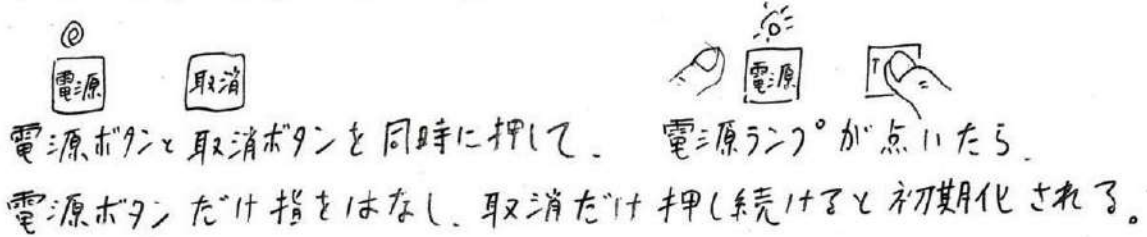 電源 取消 電源
電源ボタンと取消ボタンを同時に押して、 電源ランプが点いたら、
電源ボタンだけ指をはなし、取消だけ押し続けると初期化される。